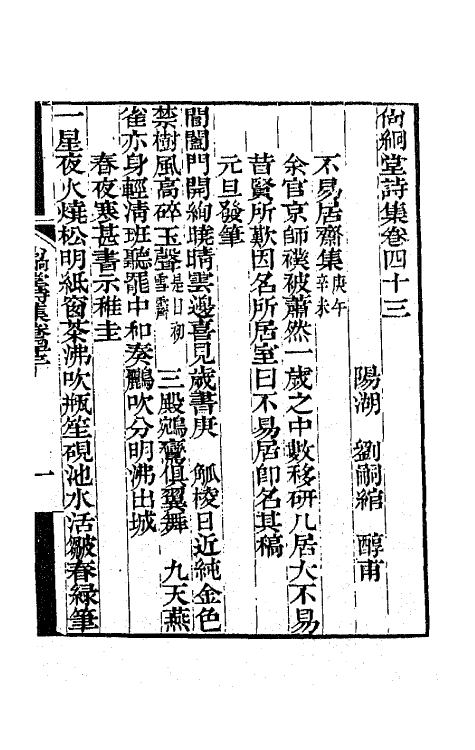 尙絅堂詩集卷四十三
陽湖 劉嗣綰 醇甫
不易居齋集庚午辛未
余官京師襆被蕭然一歲之中數移研几居大不易
昔賢所歎因名所居室曰不易居卽名其稿
元旦發筆
閶闔門開絢曉晴雲邊喜見歲書庚 觚棱日近純金色
禁樹風高碎玉聲是日初雪霽 三殿鵷鸞俱翼舞 九天燕
雀亦身輕淸班聽罷中和奏鸝吹分明沸出城
春夜寒甚書示稚圭
一星夜火燒松明紙窗茶沸吹瓶笙硯池水活皺春綠筆
一